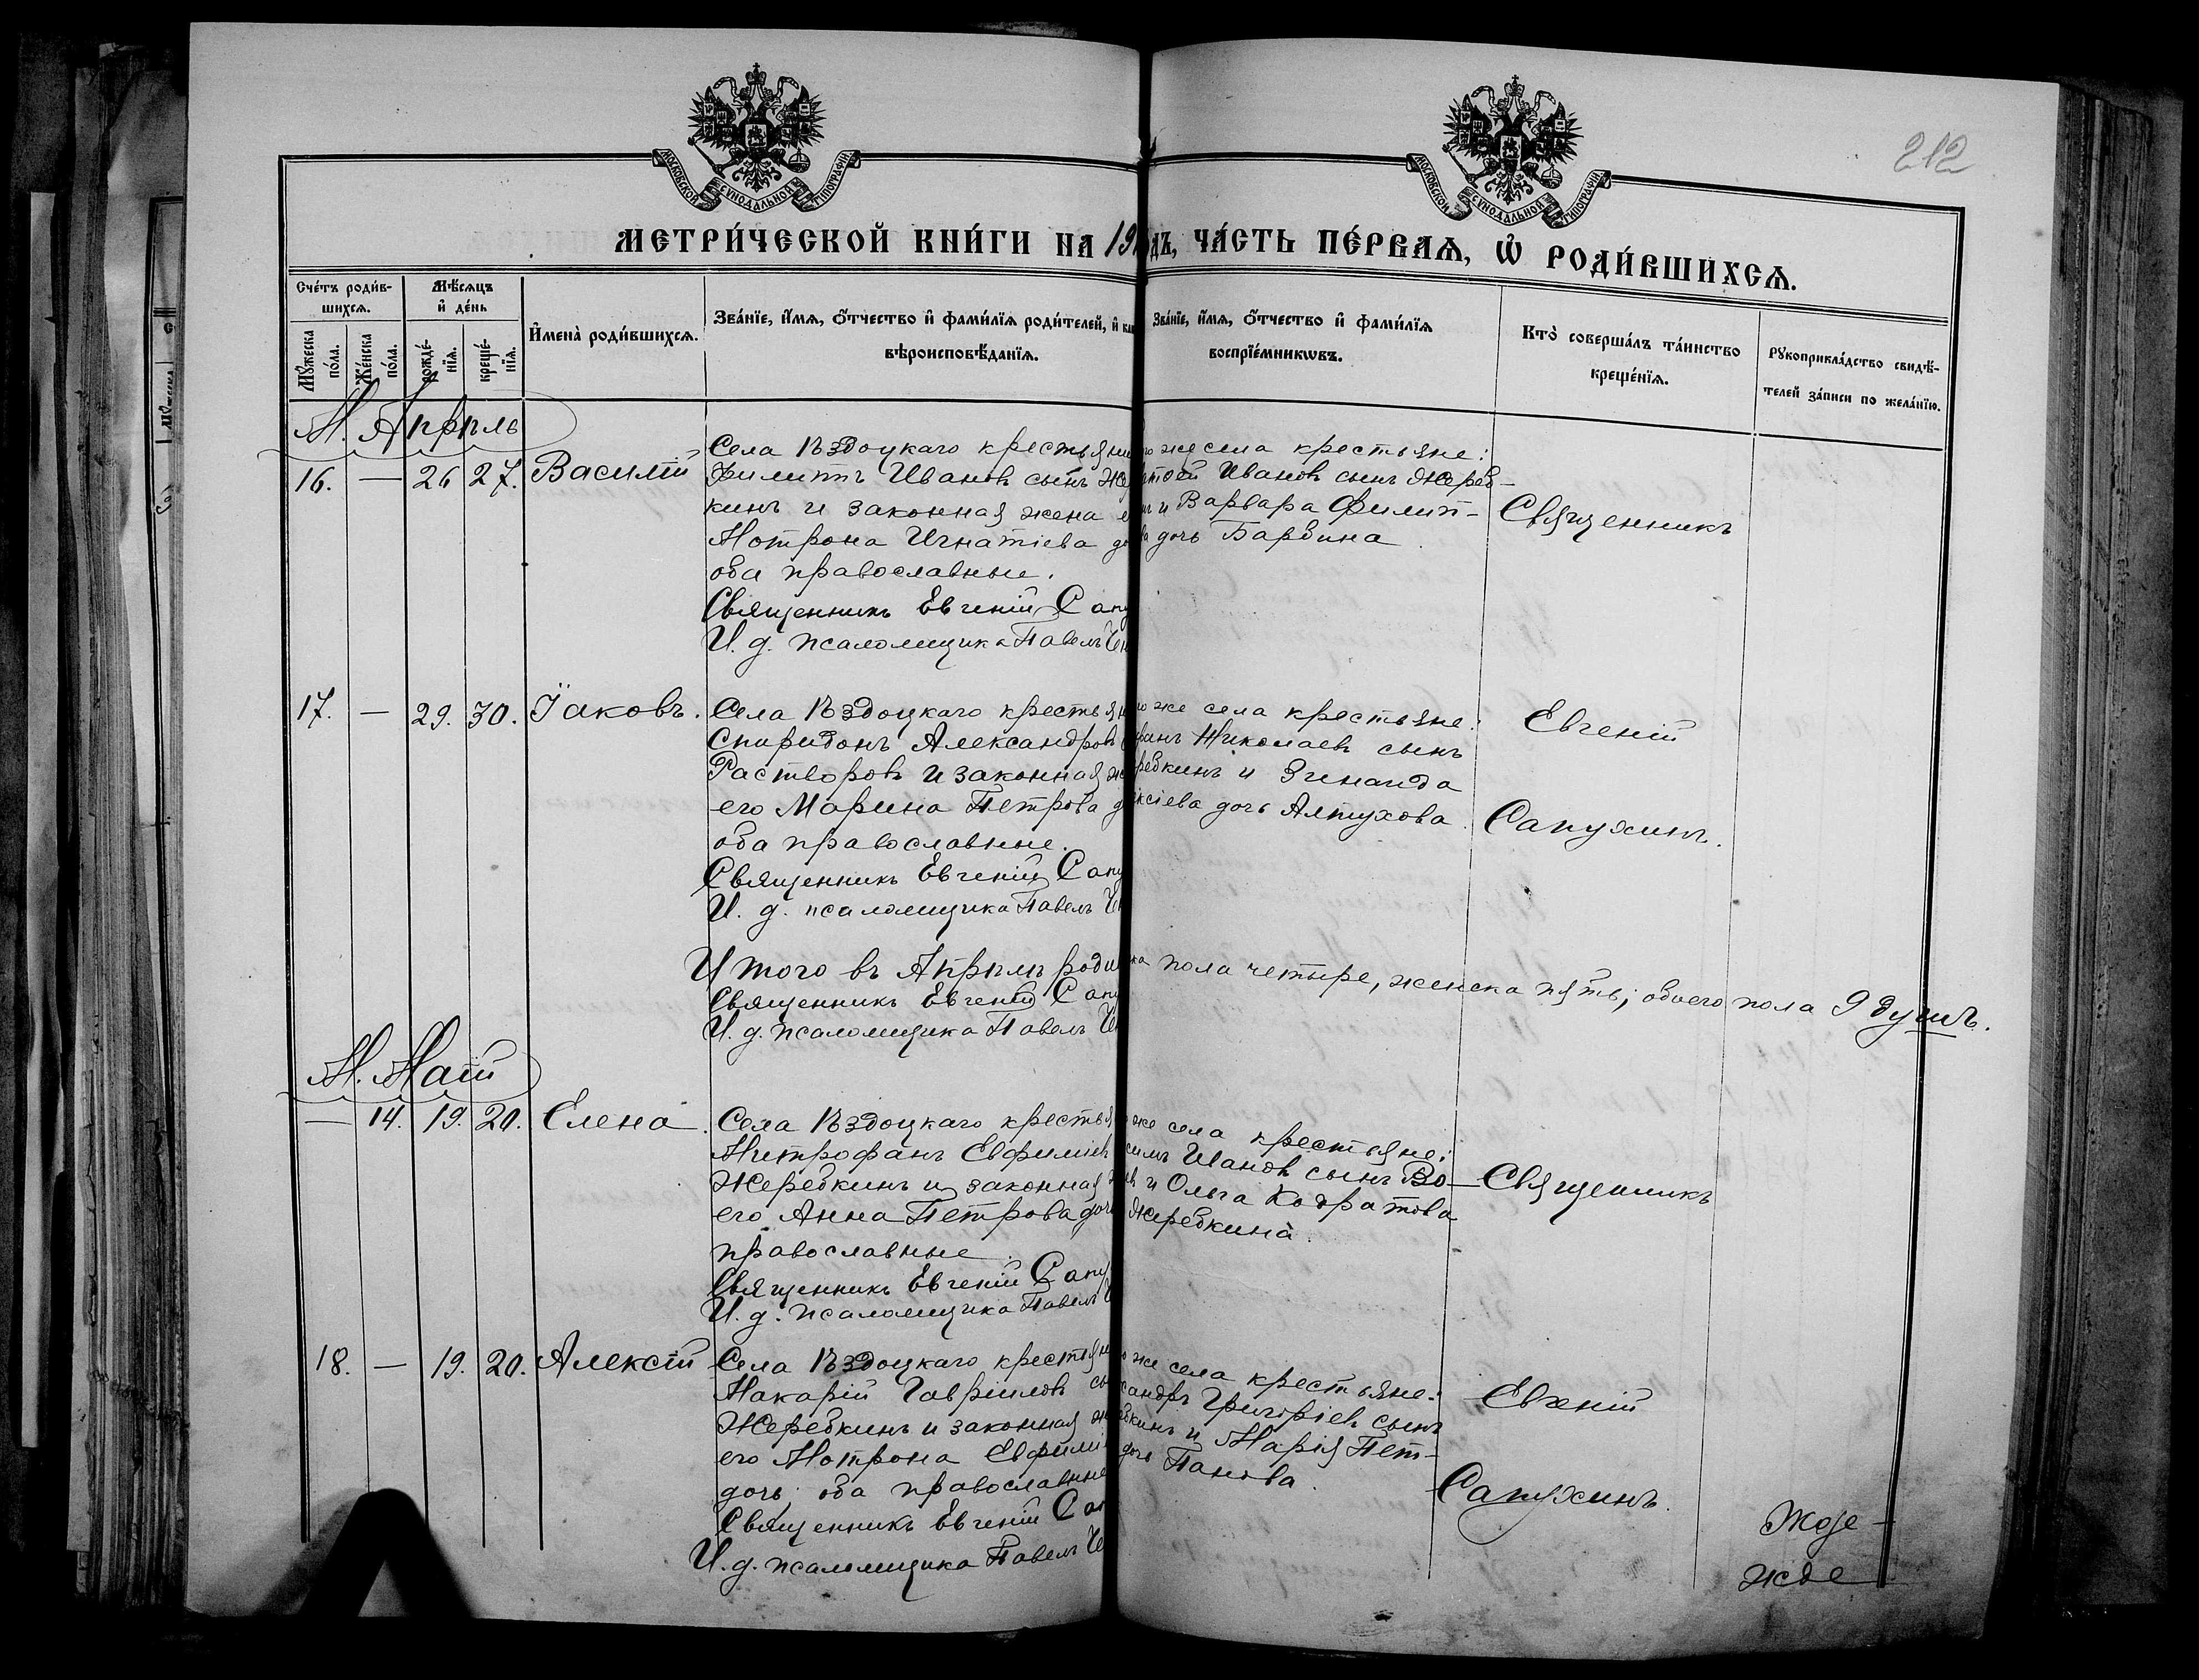 212
МОСКОВСКОЙ СѴНОДАЛЬНОЙ ТИПОГРАФІИ
МОСКОВСКОЙ СѴНОДАЛЬНОЙ ТИПОГРАФІИ
МЕТРИ́ЧЕСКОЙ КНИ́ГИ НА 19
дъ, ЧА́СТЬ ПЕ́РВАѦ, Ѡ҆ РОДИ́ВШИХСѦ.
Сче́тъ роди́в-
шихсѧ.
Мѣ́сѧцъ
и҆ де́нь
Мꙋ́жеска
по́ла.
Же́нска
по́ла.
рожде́-
нїѧ.
креще́-
нїѧ.
И҆мена̀ роди́вшихсѧ.
Зва́нїе, и҆́мѧ, ѻ҆́тчество и҆ фами́лїѧ роди́телей, и҆
вѣроисповѣ́данїѧ.
Зва́нїе, и҆́мѧ, ѻ҆́тчество и҆ фами́лїѧ
воспрїе́мникѡвъ.
Кто̀ соверша́лъ та́инство
креще́нїѧ.
Рꙋкоприкла́дство свидѣ́-
телей за́писи по жела́нїю.
М. Апрѣль
16. — 26 27. Василій
Села Вздоцкаго крестьяни
Филиппъ Ивановъ сынъ Же
кинъ и законная жена е
Мотрона Игнатіева до
оба православные.
Священникъ Евгеній Сапу
И. д. псаломщика Павелъ
же села крестьяне:
Ивановъ сынъ Жереб-
и Варвара Филип-
ва дочь Барбина
Священникъ
17. — 29. 30. Іаковъ.
Села Вздоцкаго крестьян
Спиридонъ Александровъ
Растворовъ и законная же
его Марина Петрова д
оба православные.
Священникъ Евгеній Сапу
И. д. псаломщика Павелъ
же села крестьяне:
фанъ Николаевъ сынъ
ребкинъ и Зинаида
ксіева дочь Алтухова.
Евгеній
Сапухинъ.
Итого въ Апрѣлѣ роди
ка пола четыре, женска пять; обоего пола 9 душъ.
Священникъ Евгеній Сапу
И. д. псаломщика Павелъ
М. Май
— 14. 19. 20. Елена.
Села Вздоцкаго крестья
Митрофанъ Евфиміев
Жеребкинъ и законная ж
его Анна Петрова дочь
православные.
Священникъ Евгеній Сапу
И. д. псаломщика Павелъ
же села крестьяне:
симъ Ивановъ сынъ Во-
въ и Ольга Кодратова
Жеребкина.
Священникъ
18. — 19. 20. Алексій
Села Вздоцкаго крестьян
Макарій Гавріиловъ сы
Жеребкинъ и законная же
его Мотрона Евфимі
дочь оба православные
Священникъ Евгеній Сап
И. д. псаломщика Павелъ
же села крестьяне:
сандръ Григоріевъ сынъ
бкинъ и Марія Пет-
дочь Панова.
Евгеній
Сапухинъ.